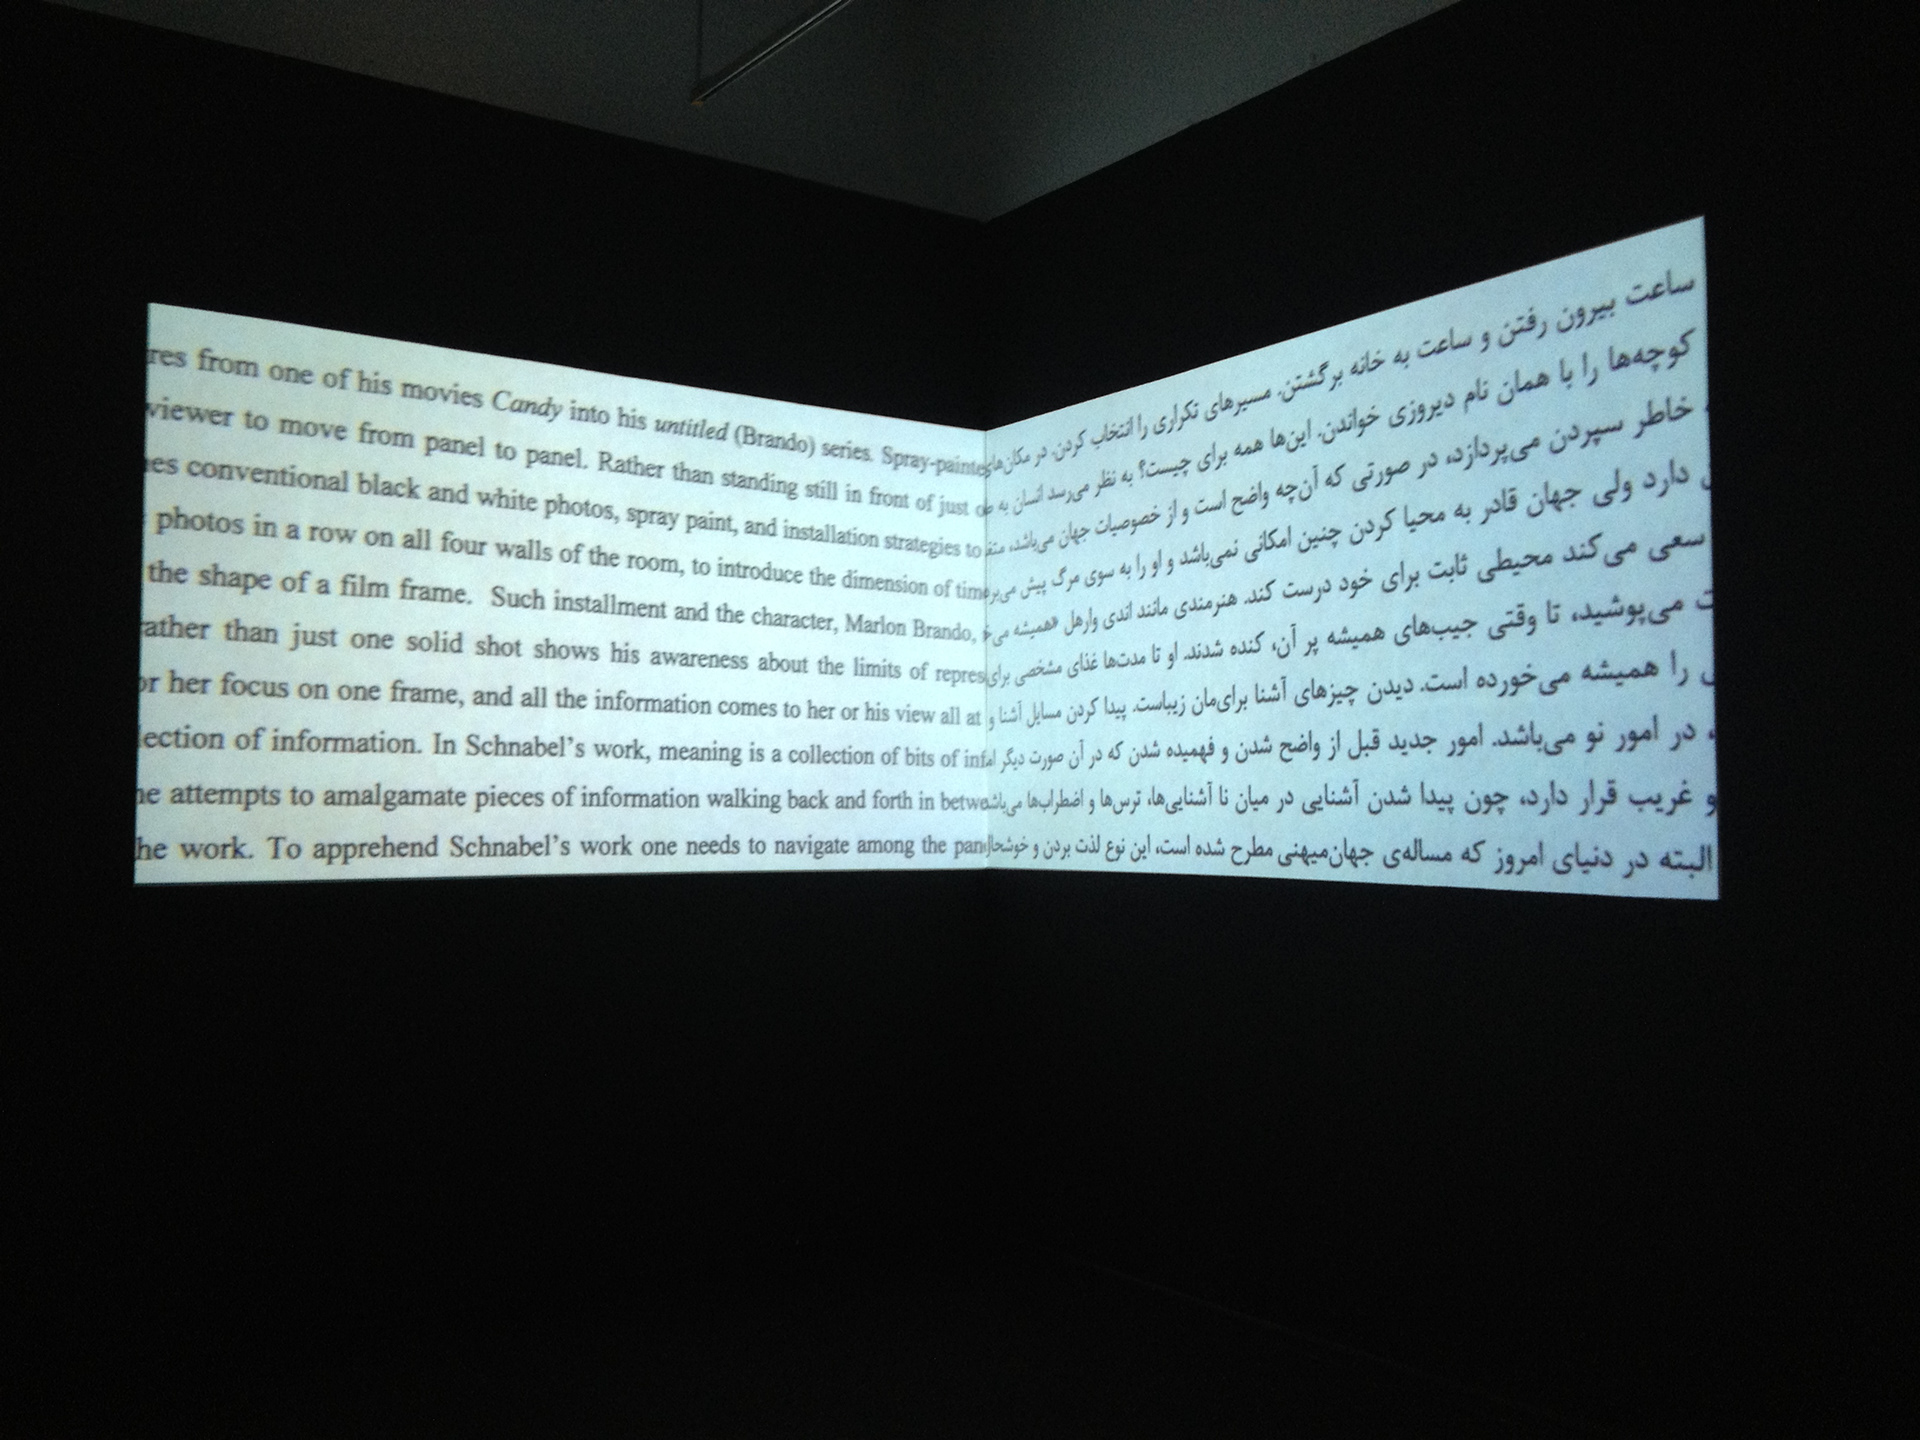 res from one of his movies Candy into his untitled (Brando) series. Spray-painte
viewer to move from panel to panel. Rather than standing still in front of just
es conventional black and white photos, spray paint, and installation strategies to
photos in a row on all four walls of the room, to introduce the dimension of time
the shape of a film frame. Such installment and the character, Marlon Brando,
rather than just one solid shot shows his awareness about the limits of repres
or her focus on one frame, and all the information comes to her or his view all at
lection of information. In Schnabel's work, meaning is a collection of bits of inf
he attempts to amalgamate pieces of information walking back and forth in betwe
the work. To apprehend Schnabel's work one needs to navigate among the pan
ساعت بیرون رفتن و ساعت به خانه برگشتن. مسیرهای تکراری را انتخاب کردن. در مکان‌های
کوچه‌ها را با همان نام دیروزی خواندن. این‌ها همه برای چیست؟ به نظر می‌رسد انسان به
خاطر سپردن می‌پردازد، در صورتی که آن‌چه واضح است و از خصوصیات جهان می‌باشد،
دارد ولی جهان قادر به محیا کردن چنین امکانی نمی‌باشد و او را به سوی مرگ پیش می‌بر
سعی می‌کند محیطی ثابت برای خود درست کند. هنرمندی مانند اندی وارهل «همیشه
ت می‌پوشید، تا وقتی جیب‌های همیشه پر آن، کنده شدند. او تا مدت‌ها غذای مشخصی برای
را همیشه می‌خورده است. دیدن چیزهای آشنا برای‌مان زیباست. پیدا کردن مسایل آشنا و
، در امور نو می‌باشد. امور جدید قبل از واضح شدن و فهمیده شدن که در آن صورت دیگر
و غریب قرار دارد، چون پیدا شدن آشنایی در میان نا آشنایی‌ها، ترس‌ها و اضطراب‌ها می‌باش
البته در دنیای امروز که مساله‌ی جهان‌میهنی مطرح شده است، این نوع لذت بردن و خوشحال